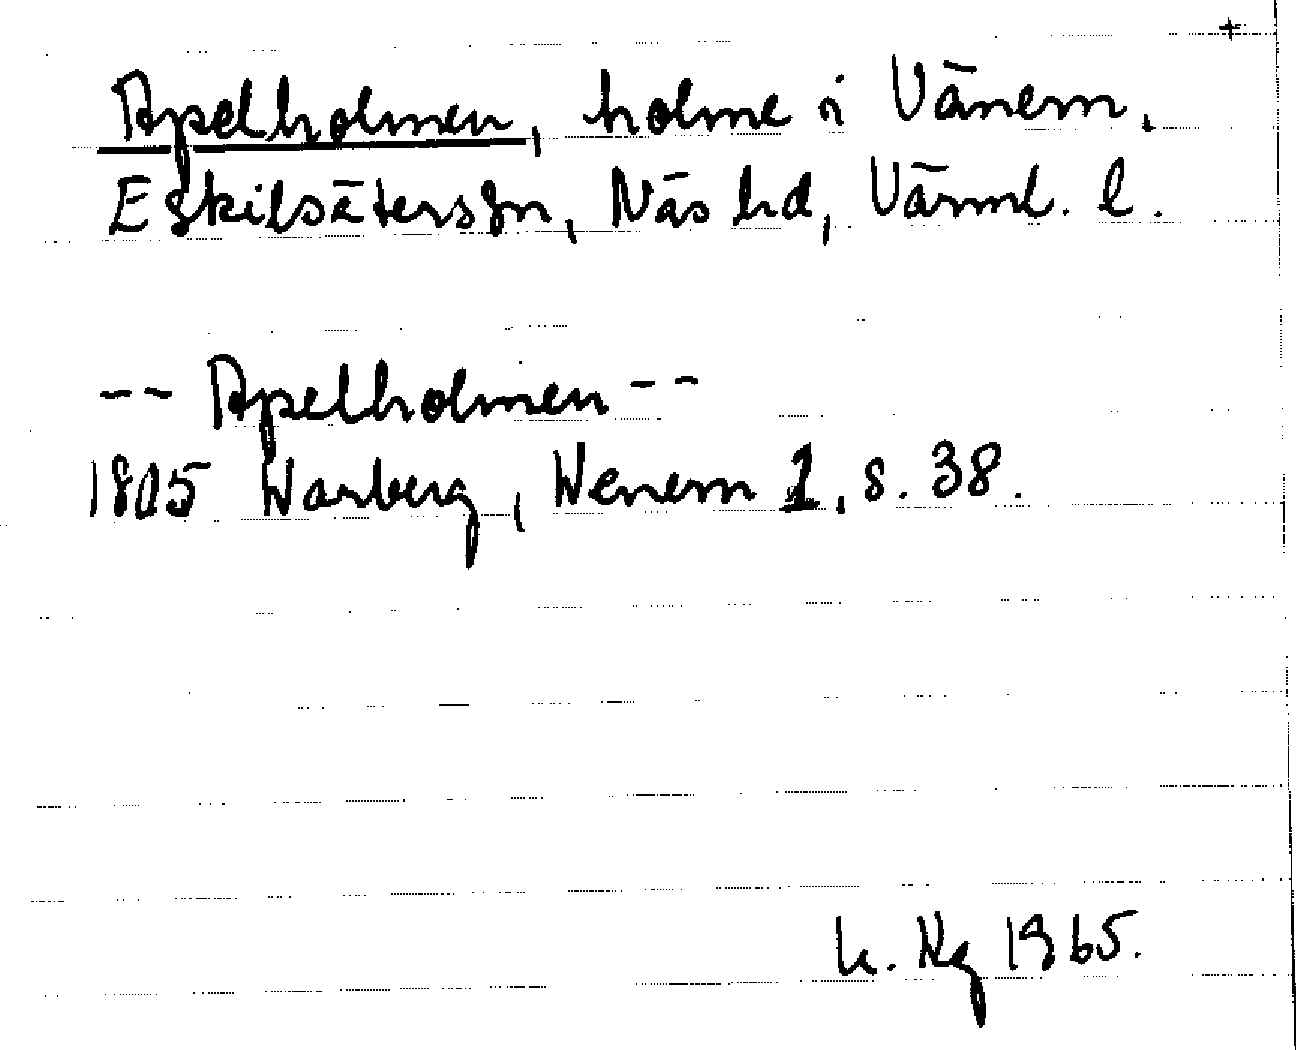 +
Apelholmen, holme i Vänern,
Eskilsäterssn, Näs hd, Värml. l.
-- Apelholmen --
1805 Warberg, Wenern 1, s. 38.
h. Ng 1965.